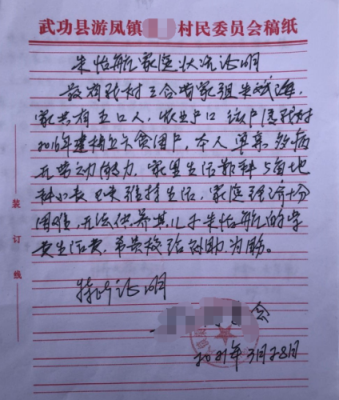 武功县游凤镇 村民委员会稿纸
朱怡航家庭状况证明
兹有 村三合 家组朱斌海,
家共有五口人,农业户口 该户 村
2016年建档立 贫困户,本人 多病
无劳动能力,家里生活 靠种 地
种小麦 玉米维持生活,家庭经济十分
困难,无法供养其儿子朱怡航的学
费生活费,希贵校给 助为盼。
特此证明
会
2021年3月28日
装订线